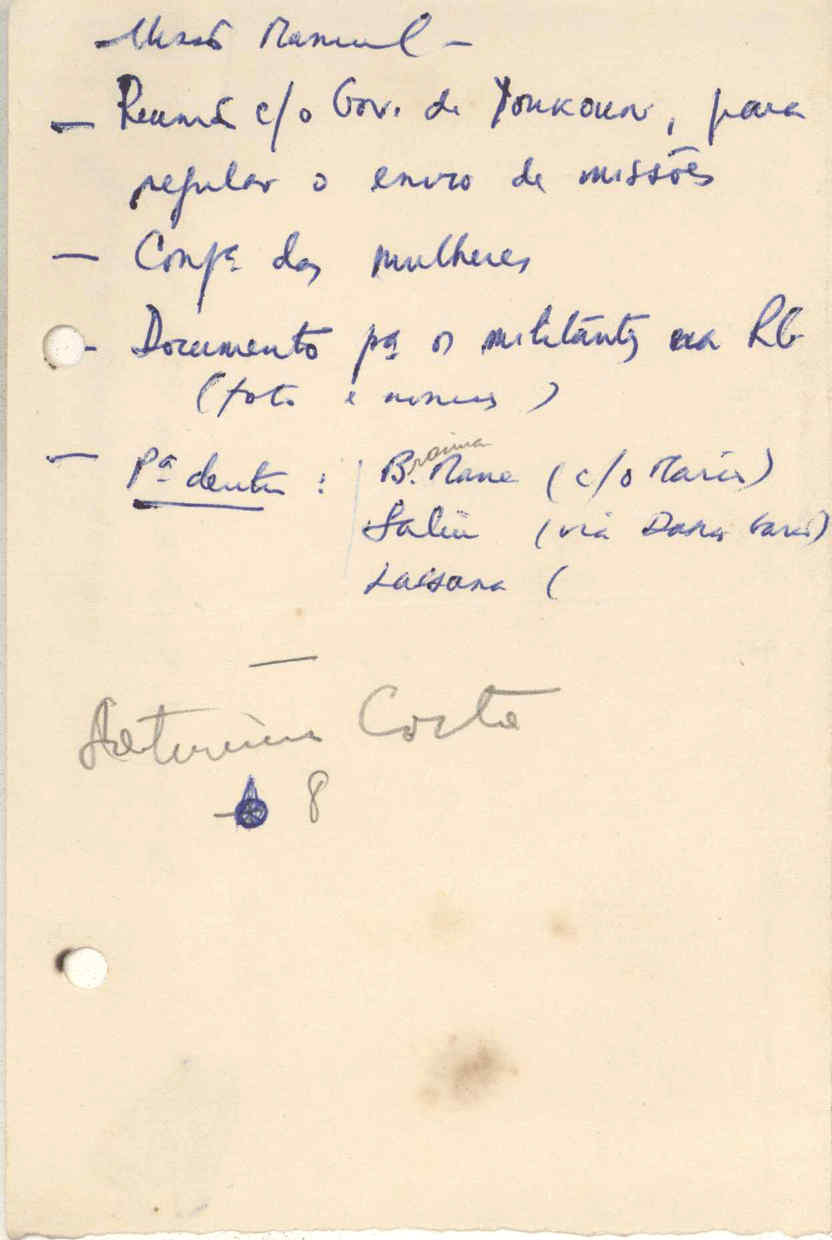 – Missão Manuel –
– Reunião c/o Gov. de Youkoun, para
regular o envio de missões
– Confª das mulheres
– Documento pª os militantes na RG
(foto e nomes)
– Pª dentro : B. Mane (c/o Mário)
Braima
Saliu (via
Laisana (
—
Saturnino Costa
– 8